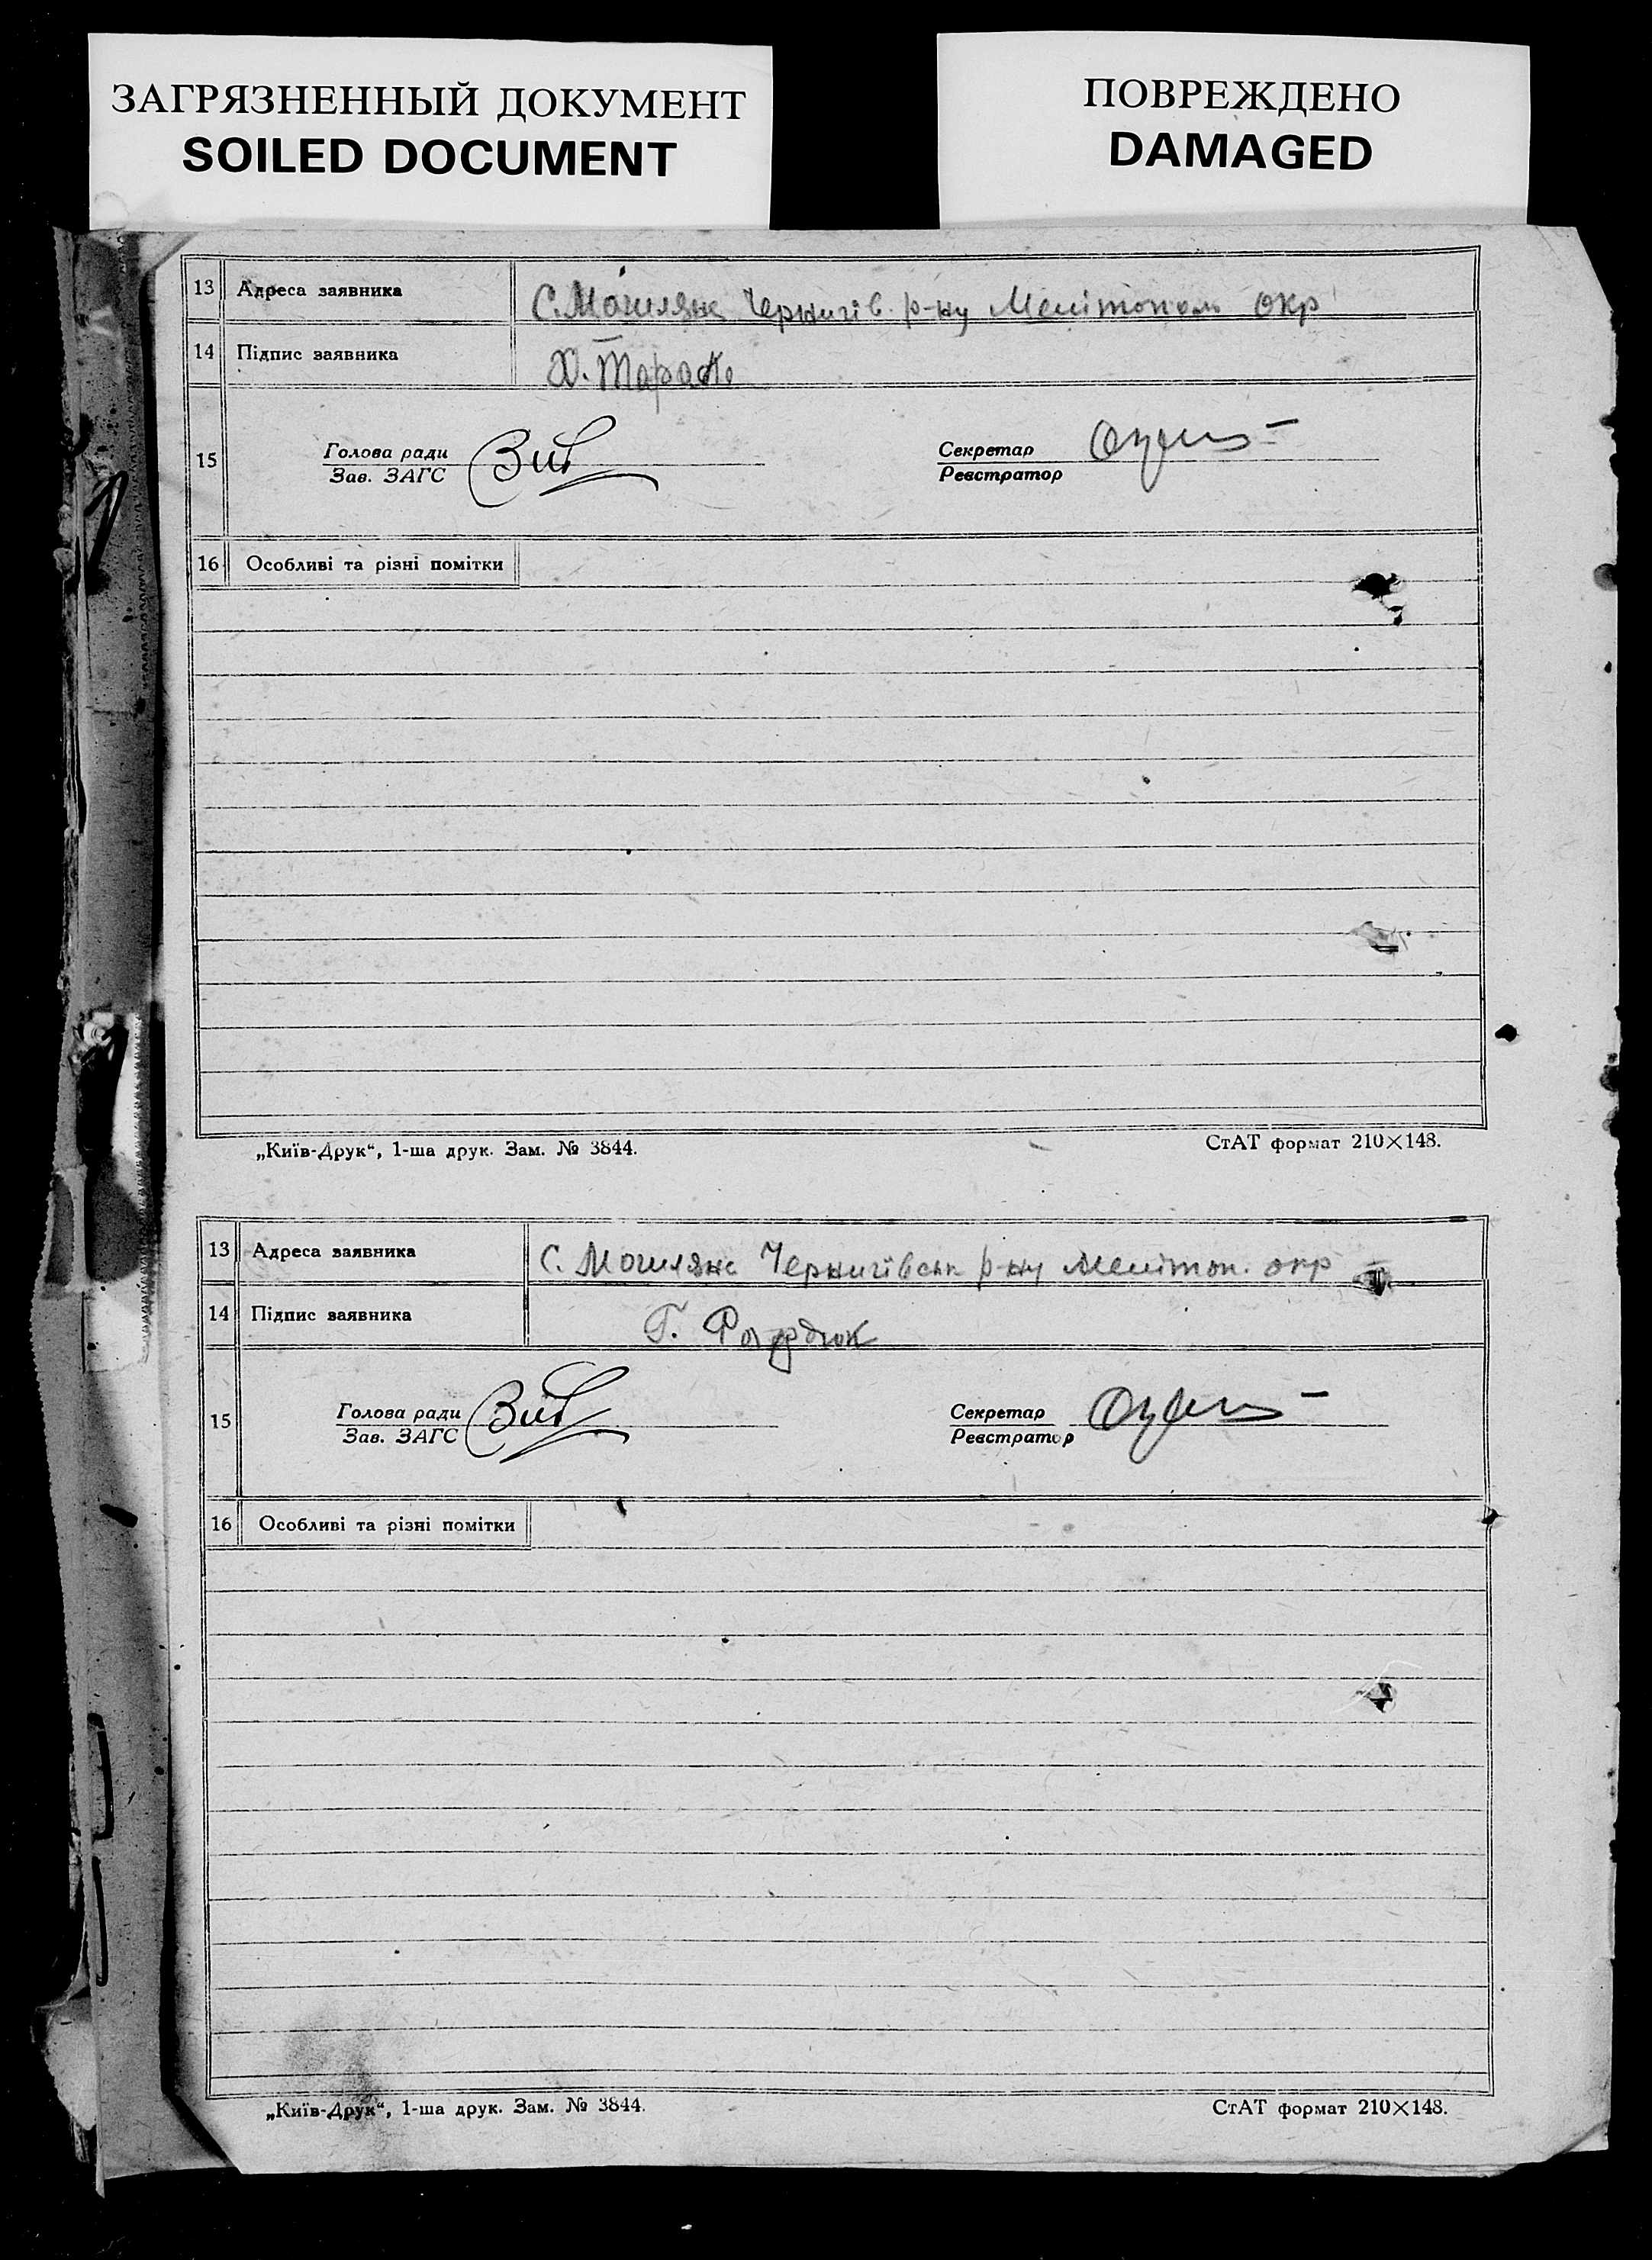 ЗАГРЯЗНЕННЫЙ ДОКУМЕНТ
SOILED DOCUMENT
ПОВРЕЖДЕНО
DAMAGED
13 Адреса заявника С. Могиляне Чернигів. р-ну Мелітополь окр
14 Підпис заявника Х. Тарас
15 Голова ради Секретар
Зав. ЗАГС Реєстратор
16 Особливі та різні помітки
„Київ-Друк“, 1-ша друк. Зам. № 3844. СтАТ формат 210×148.
13 Адреса заявника С. Могиляне Чернигівськ р-ну Мелітоп. окр
14 Підпис заявника Г.
15 Голова ради Секретар
Зав. ЗАГС Реєстратор
16 Особливі та різні помітки
„Київ-Друк“, 1-ша друк. Зам. № 3844. СтАТ формат 210×148.